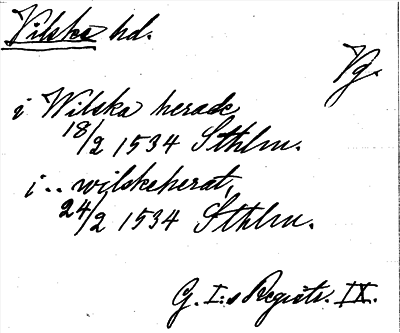 Vilske hd.
Vg.
i Wilska herade
18/2 1534 Sthlm.
i .. wilskeherat,
24/2 1534 Sthlm.
G. I:s Registr. IX.